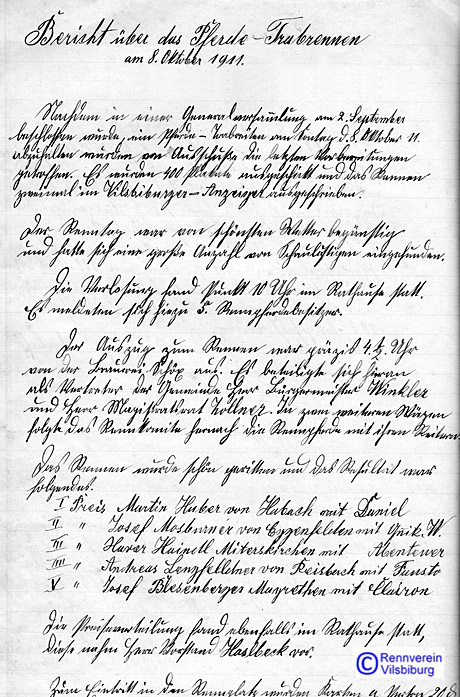 Bericht über das Pferde-Trabrennen
am 8. Oktober 1911.
Nachdem in einer Generalversammlung am 2. September
beschlossen wurde, ein Pferde-Trabreiten am Sontag d. 8. Oktober 11.
abzuhalten wurden vom Ausschuße die letzten Vorbereitungen
getroffen. Es wurden 400 Plakate ausgeschickt und das Rennen
zweimal im Vilsbiburger-Anzeiger ausgeschrieben.
Der Renntag war von schönsten Wetter begünstig
und hatte sich eine große Anzahl von Schaulustigen eingefunden.
Die Verlosung fand Punkt 10 Uhr im Rathause statt.
Es meldeten sich hiezu 5. Rennpferdebesitzer.
Der Auszug zum Rennen war präzis 1/2 Uhr
von der Brauerei Schöx aus. Es beteiligte sich hieran
als Vertreter der Gemeinde Herr Bürgermeister Winkler
und Herr Magistratsrat Zollner. In zwei weiteren Wägen
folgte das Rennkomite hernach die Rennpferde mit ihren Reitern.
Das Rennen wurde schön geritten und das Resultat war
folgendes.
I Preis Martin Huber von Habach mit Daniel
II " Josef Mosburner von Eggenfelden mit Quik. W.
III " Xaver Haipell Miterskirchen mit Abenteuer
IIII " Andreas Lenzfellner von Reisbach mit Fausto
V " Josef Blesenberger Magrethen mit Clairon
Die Preiseverteilung fand ebenfalls im Rathause statt,
diese nahm Herr Vorstand Hasbeck vor.
Zum Eintritt in den Rennplatz wurden Karten
© Rennverein
Vilsbiburg